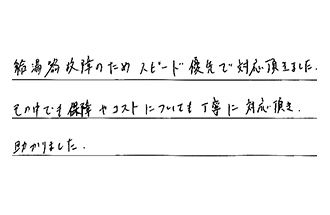 給湯器故障のため スピード優先で対応頂きました。
その中でも保障やコストについても丁寧に対応頂き、
助かりました。